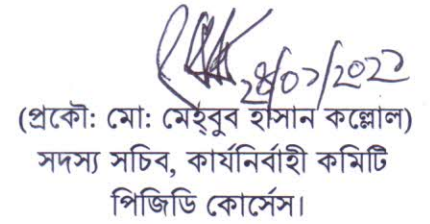 28/07/2022
(প্রকৌ: মো: মেহ্বুব হাসান কল্লোল)
সদস্য সচিব, কার্যনির্বাহী কমিটি
পিজিডি কোর্সেস।